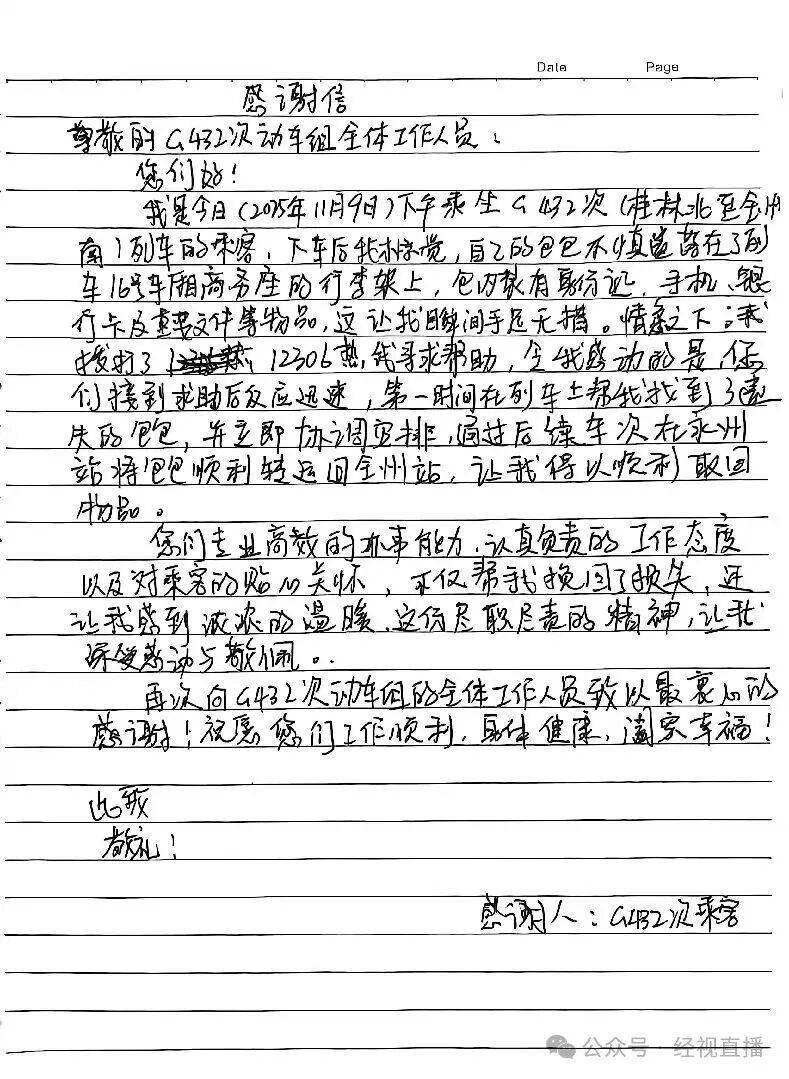 Date Page
感谢信
尊敬的G432次动车组全体工作人员:
您们好!
我是今日(2025年11月9日)下午乘坐G432次(桂林北至全州
南)列车的乘客,下车后我才惊觉,自己的包包不慎遗落在了列
车16号车厢商务座的行李架上,包内装有身份证、手机、银
行卡及重要文件等物品,这让我瞬间手足无措。情急之下,我
拨打了 12306热线寻求帮助,令我感动的是,您
们接到求助后反应迅速,第一时间在列车上帮我找到了遗
失的包包,并立即协调安排,通过后续车次在永州
站将包包顺利转运回全州站,让我得以顺利取回
物品。
您们专业高效的办事能力、认真负责的工作态度
以及对乘客的贴心关怀,不仅帮我挽回了损失,还
让我感到浓浓的温暖。这份尽职尽责的精神,让我
深受感动与敬佩。
再次向G432次动车组的全体工作人员致以最衷心的
感谢!祝愿您们工作顺利,身体健康,阖家幸福!
此致
敬礼!
感谢人:G432次乘客
公众号·经视直播